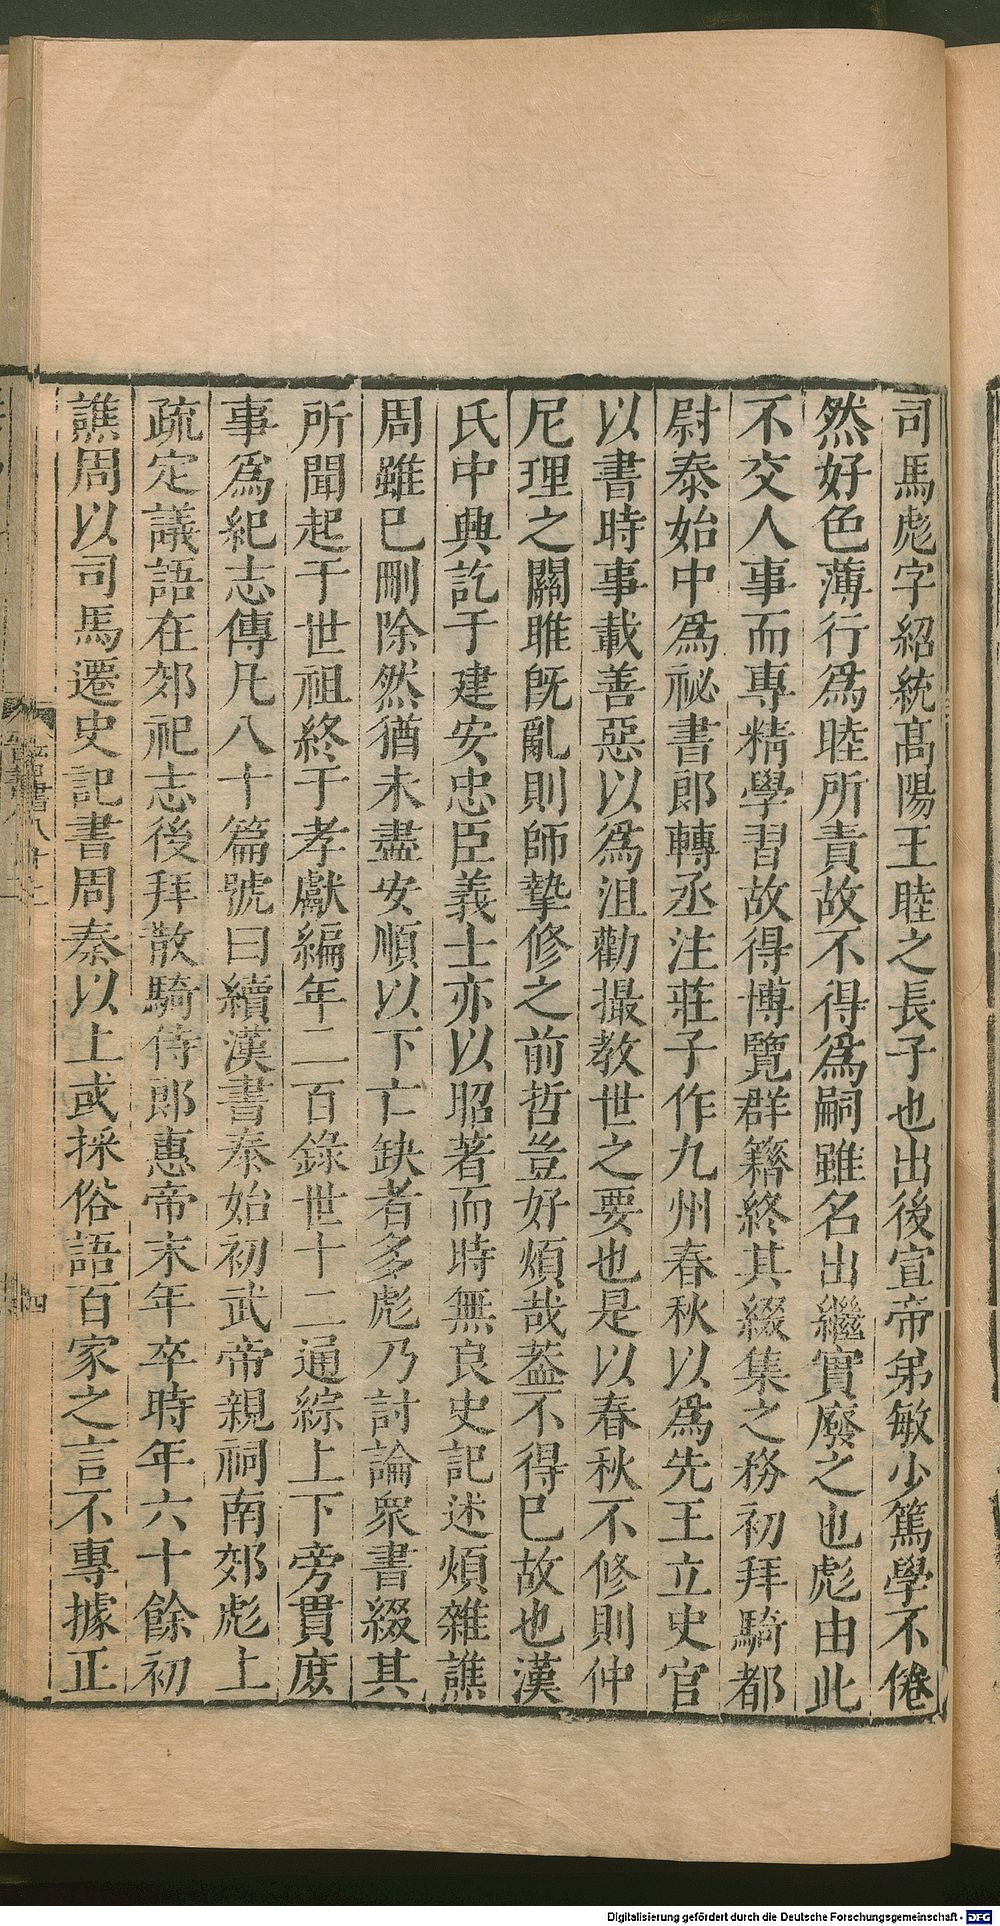 司馬彪字紹統高陽王睦之長子也出後宣帝弟敏少篤學不倦
然好色薄行爲睦所責故不得爲嗣雖名出繼實廢之也彪由此
不交人事而專精學習故得博覽群籍終其綴集之務初拜騎都
尉泰始中爲祕書郎轉丞注莊子作九州春秋以爲先王立史官
以書時事載善惡以爲沮勸撮教世之要也是以春秋不修則仲
尼理之關雎旣亂則師摯修之前哲豈好煩哉葢不得已故也漢
氏中興訖于建安忠臣義士亦以昭著而時無良史記述煩雜譙
周雖已刪除然猶未盡安順以下亡缺者多彪乃討論衆書綴其
所聞起于世祖終于孝獻編年二百錄世十二通綜上下旁貫庶
事爲紀志傳凡八十篇號曰續漢書泰始初武帝親祠南郊彪上
疏定議語在郊祀志後拜散騎侍郎惠帝末年卒時年六十餘初
譙周以司馬遷史記書周秦以上或採俗語百家之言不專據正
四
Digitalisierung gefördert durch die Deutsche Forschungsgemeinschaft - DFG